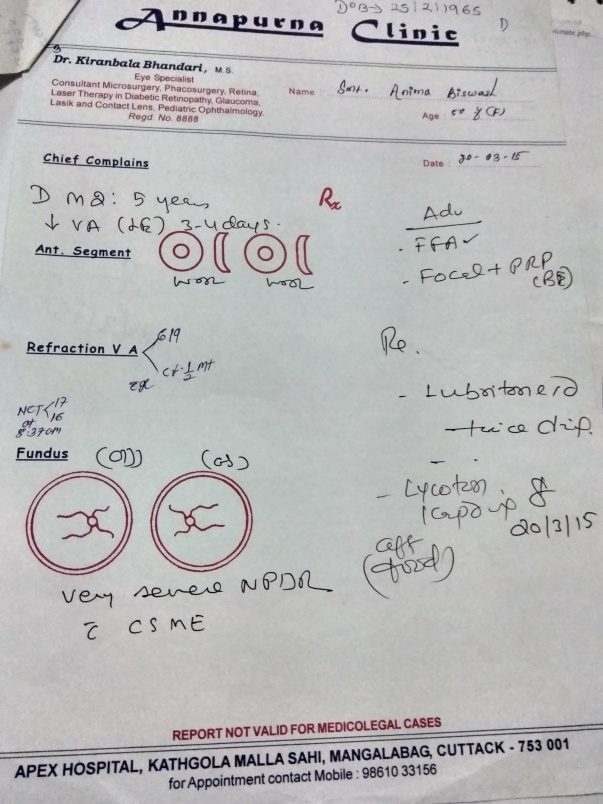 DOB→ 25/2/1965
D
Annapurna Clinic
Dr. Kiranbala Bhandari, M.S.
Eye Specialist
Consultant Microsurgery, Phacosurgery, Retina,
Laser Therapy in Diabetic Retinopathy, Glaucoma,
Lasik and Contact Lens, Pediatric Ophthalmology.
Regd. No. 8888
Name Smt. Anima Biswal
Age 50 y (F)
Date 20-03-15
Chief Complains
D M 2: 5 years
↓ VA (LE) 3-4 days.
Rx
Adv
- FFA ✓
- Focal + PRP
(BE)
Ant. Segment
Refraction V A
6/9
cf. 1/2 mt
NCT 17
16
at
8:37am
Re.
- Lubritone
twice
Fundus
(OD)
(OS)
20/3/15
(food)
very severe NPDR
c̄ CSME
REPORT NOT VALID FOR MEDICOLEGAL CASES
APEX HOSPITAL, KATHGOLA MALLA SAHI, MANGALABAG, CUTTACK - 753 001
for Appointment contact Mobile : 98610 33156